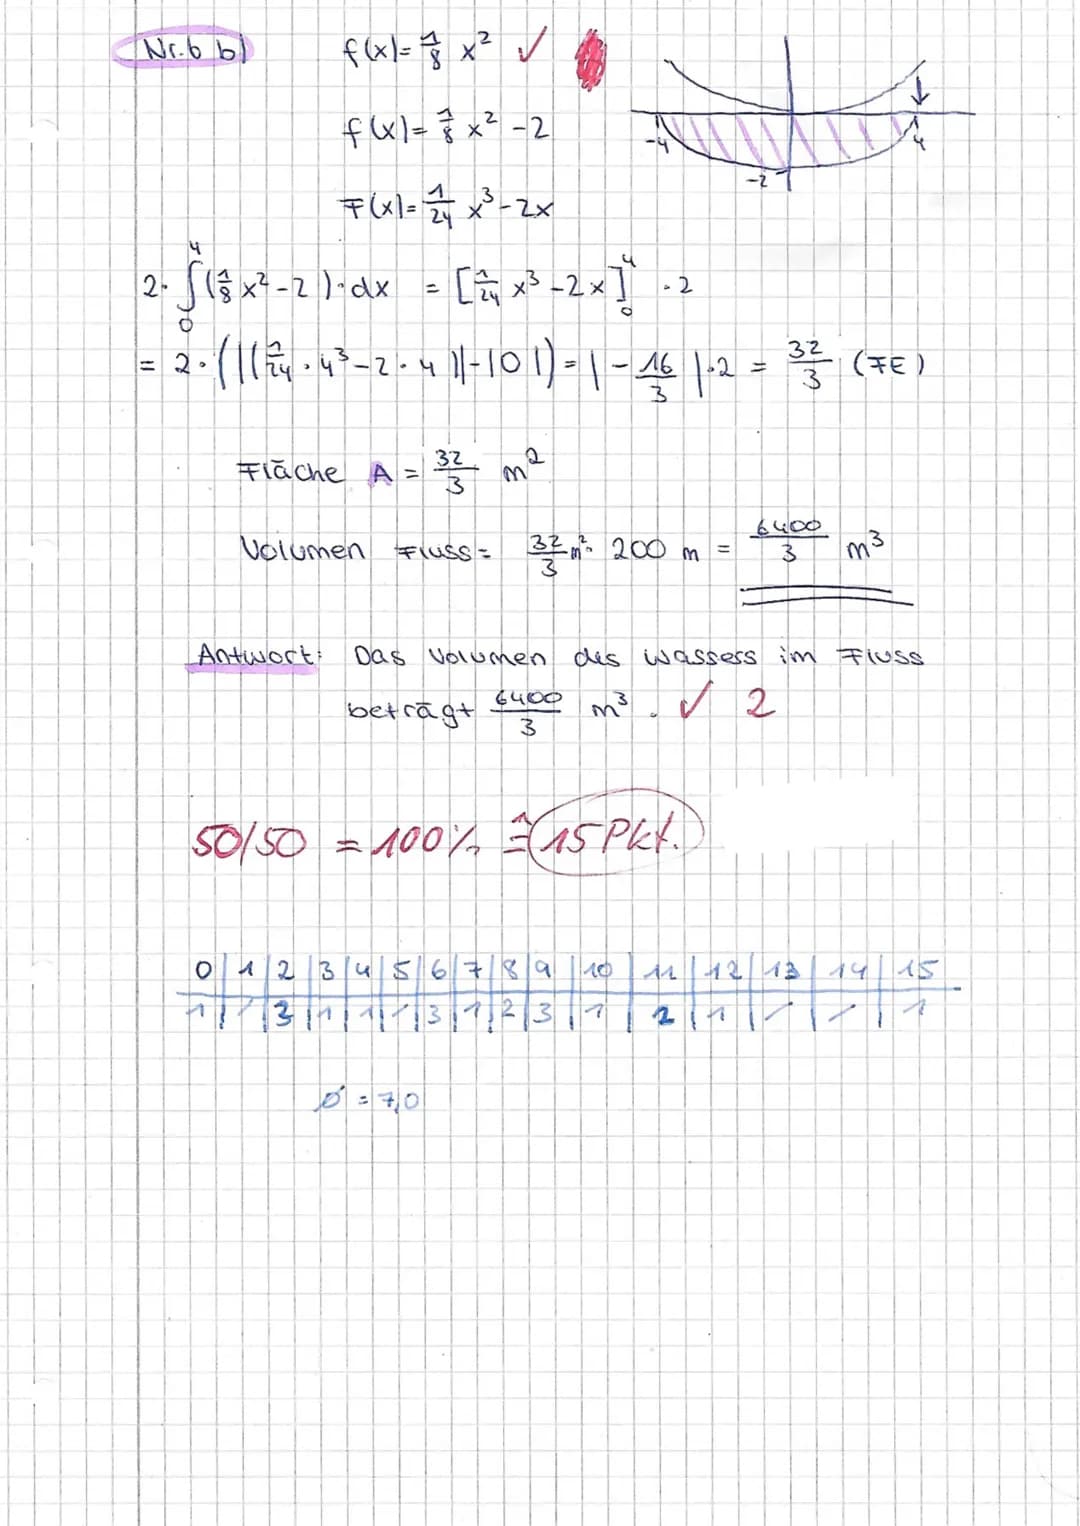 Nr.6 b)
f(x)= 1/8 x² ✓
f(x)= 1/8 x² -2
F(x)= 1/24 x³-2x
-4
4
-2
2· ∫₀⁴ (1/8 x²-2)·dx = [1/24 x³-2x]₀⁴ ·2
= 2·(|(1/24 · 4³-2·4)|-|0|)=|- 16/3 |·2 = 32/3 (FE)
Fläche A = 32/3 m²
Volumen Fluss= 32/3 m²· 200 m = 6400/3 m³
Antwort: Das Volumen des Wassers im Fluss
beträgt 6400/3 m³. ✓ 2
50/50 = 100% ≙ 15 Pkt.
0 | 1 | 2 | 3 | 4 | 5 | 6 | 7 | 8 | 9 | 10 | 11 | 12 | 13 | 14 | 15
1 | / | 3 | 1 | 1 | / | 3 | 1 | 2 | 3 | 1 | 2 | 1 | / | / | 1
Ø = 7,0